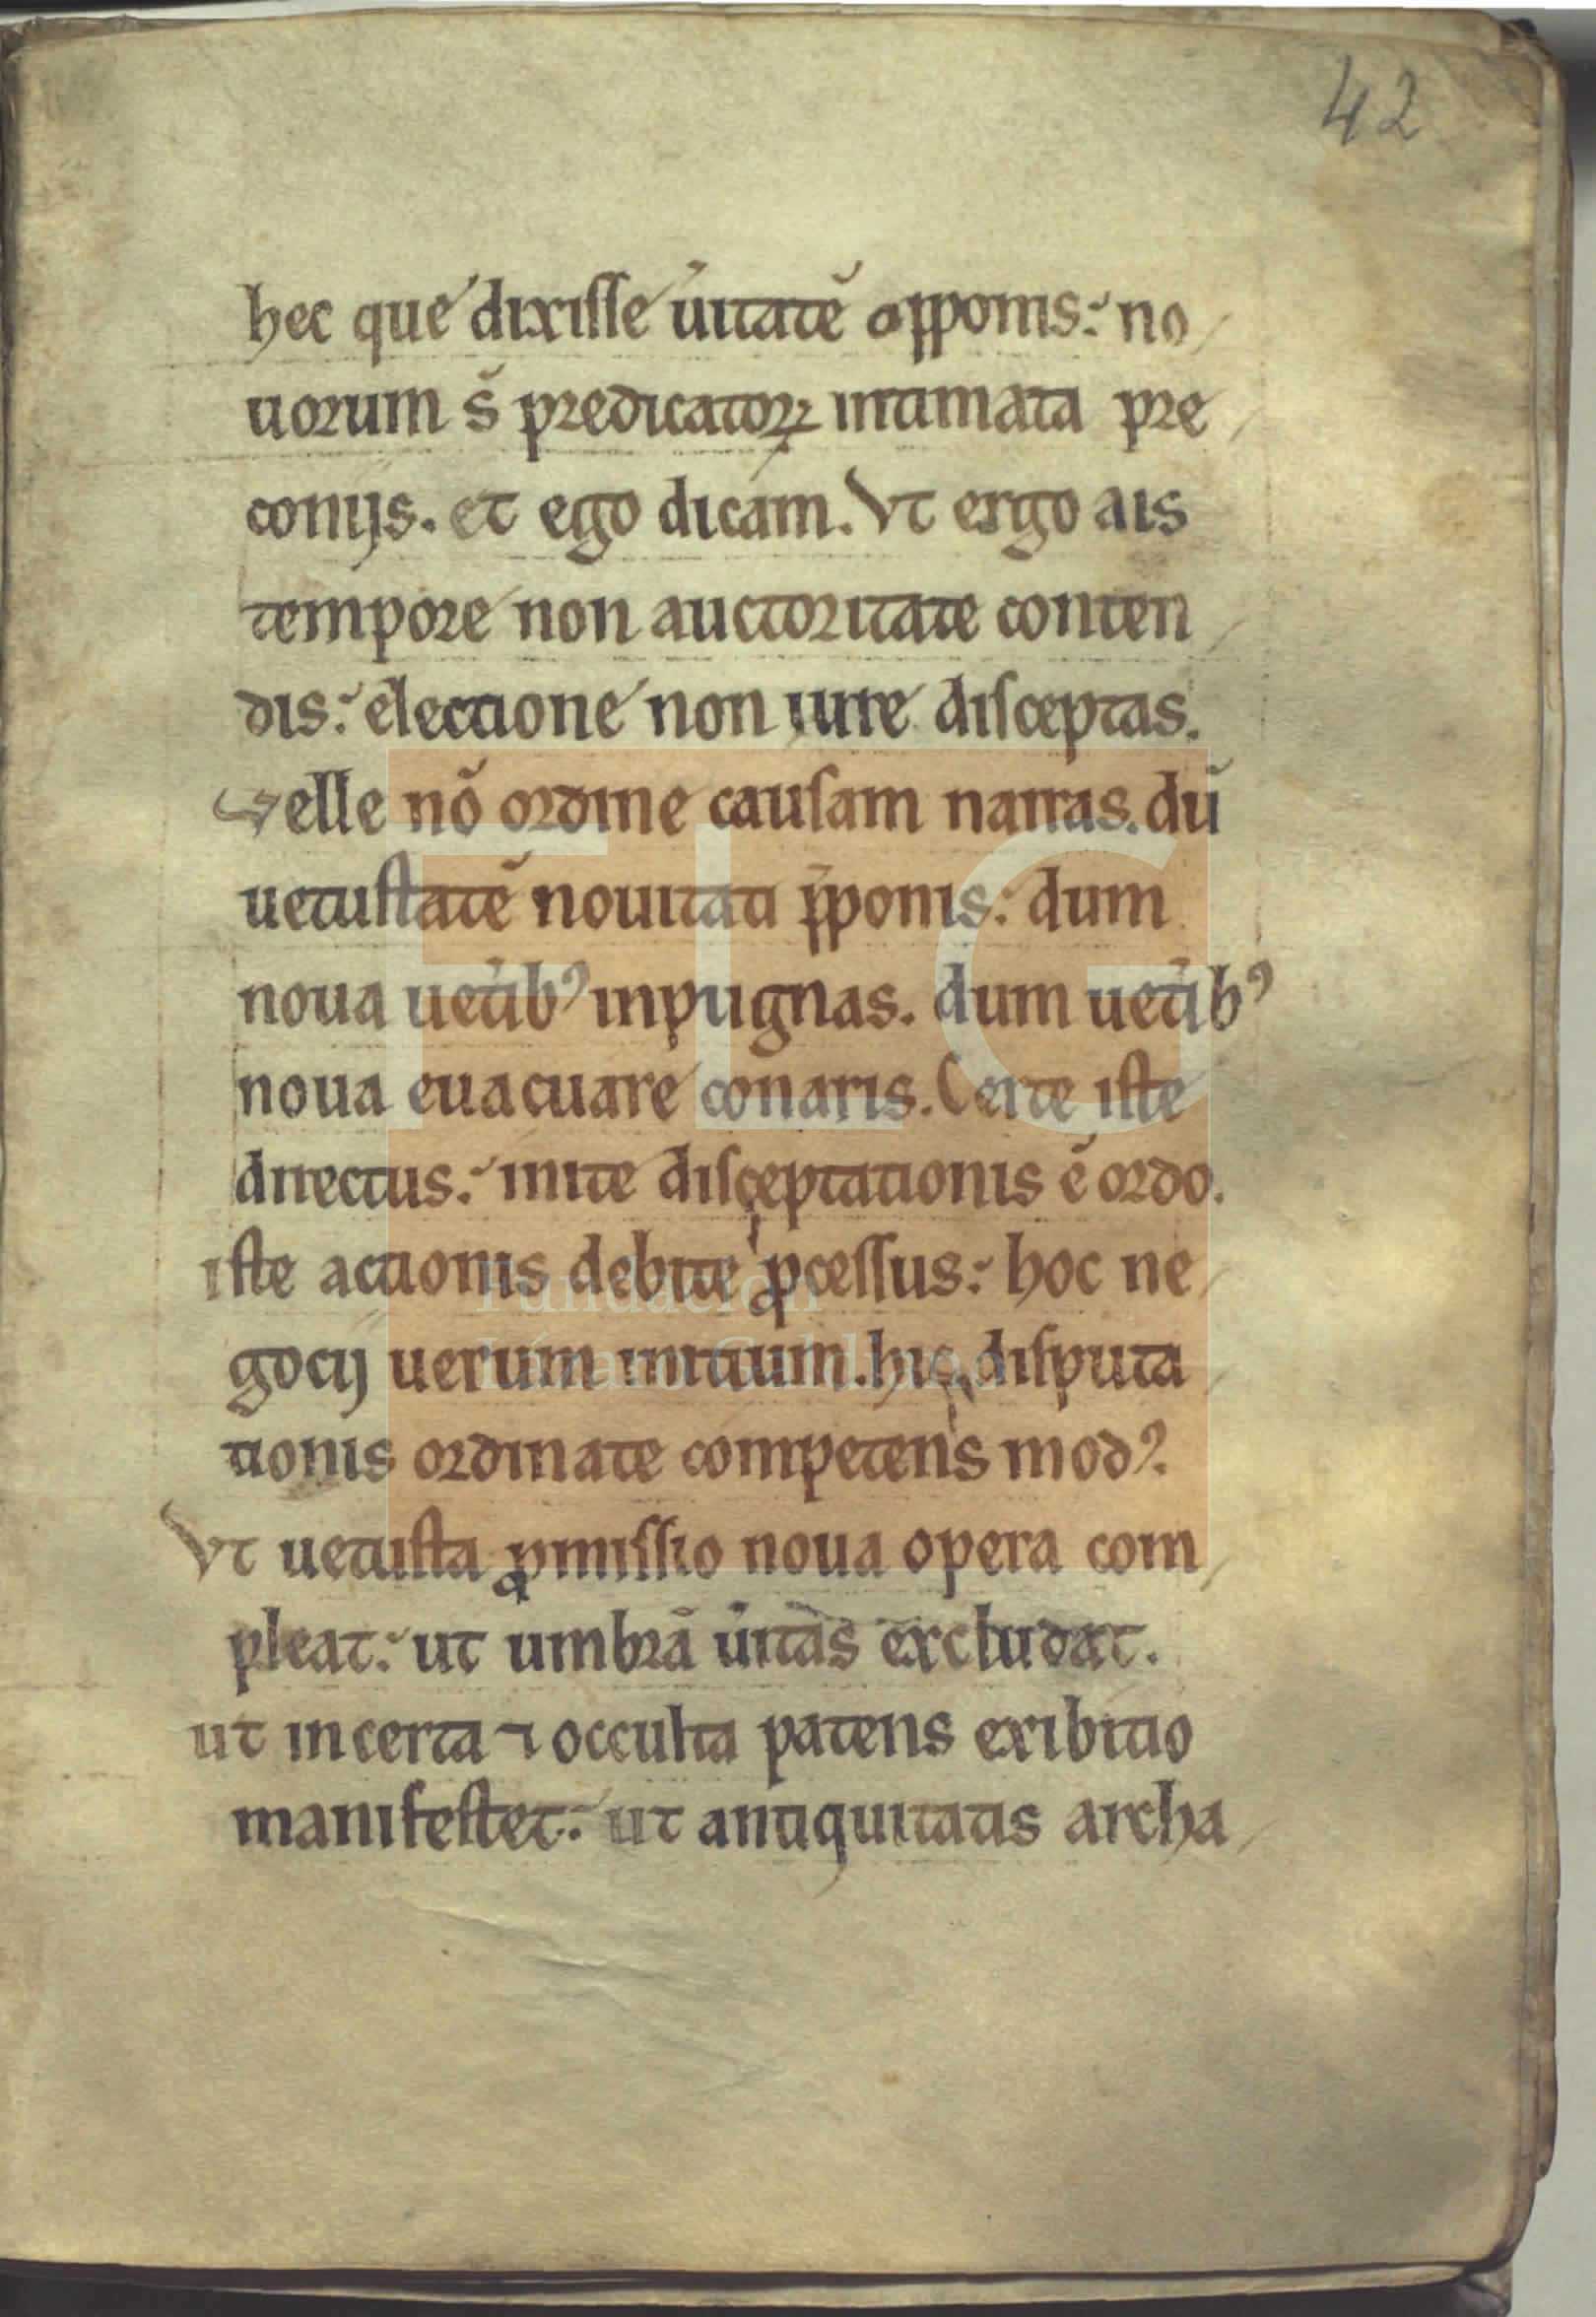 42
hec que dixisse u̓itatē opponis: no
uorum s̄ predicatorꝝ intimata pre
conijs. et ego dicam. Vt ergo ais
tempore non auctoritate conten
dis: electione non iure disceptas.
Velle nō ordine causam narras. dū
uetustatē nouitati p̄ponis: dum
noua uet̓ibꝰ inpugnas. dum uet̓ibꝰ
noua euacuare conaris. Certe iste
directus: inite disceptationis ē ordo.
iste actionis debite ꝓcessus: hoc ne
gocij uerum initium. hic disputa
tionis ordinate competens modꝰ.
Vt uetusta ꝓmissio noua opera com
pleat: ut umbrā u̓itas excludat.
ut incerta ⁊ occulta patens exibitio
manifestet: ut antiquitatis archa
FLG
Fundación
Lázaro Galdiano